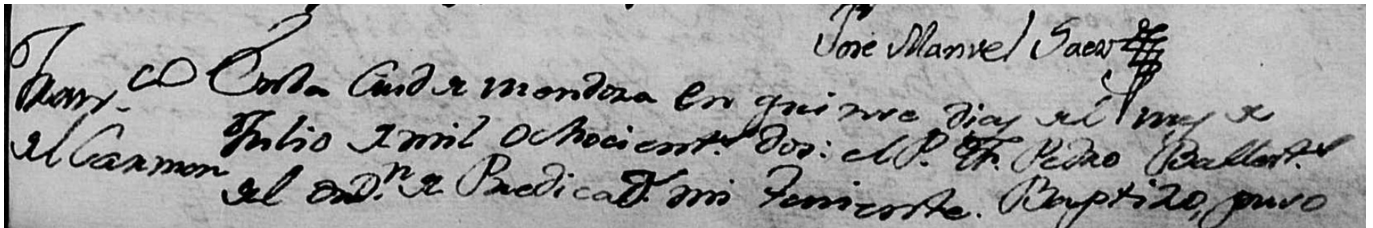 Jose Manuel Saez
Fran.co En la Ciud de Mendoza en quinse dias del mes de
del Carmen Julio de mil ochocient.s dos: el P. Fr. Pedro Ballest.s
del Ord.n de Predicad.s mi Teniente. Baptizo, puso